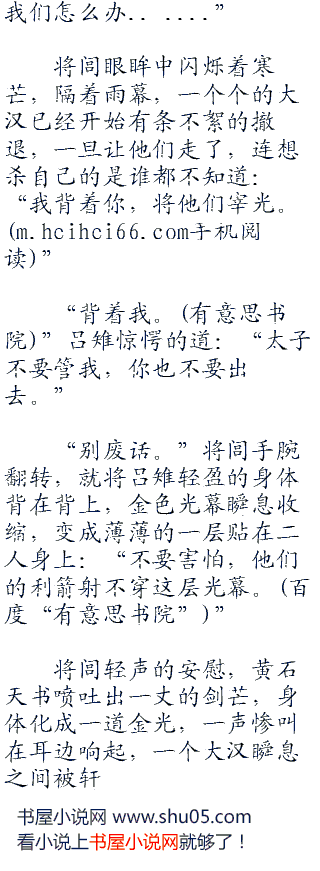 我们怎么办.. .....”
将闾眼眸中闪烁着寒
芒，隔着雨幕，一个个的大
汉已经开始有条不絮的撤
退，一旦让他们走了，连想
杀自己的是谁都不知道：
“我背着你，将他们宰光。
(m.hcihci66.com手机阅
读)”
“背着我。(有意思书
院)”吕雉惊愕的道：“太子
不要管我，你也不要出
去。”
“别废话。”将闾手腕
翻转，就将吕雉轻盈的身体
背在背上，金色光幕瞬息收
缩，变成薄薄的一层贴在二
人身上：“不要害怕，他们
的利箭射不穿这层光幕。(百
度“有意思书院”)”
将闾轻声的安慰，黄石
天书喷吐出一丈的剑芒，身
体化成一道金光，一声惨叫
在耳边响起，一个大汉瞬息
之间被轩
书屋小说网 www.shu05.com
看小说上书屋小说网就够了！